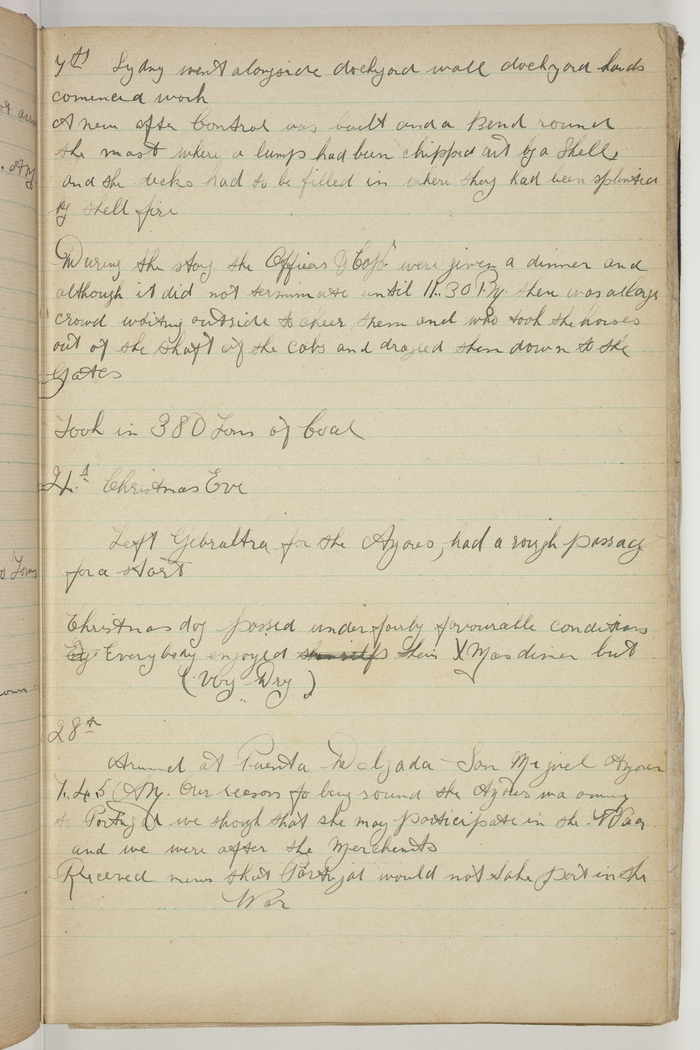 7th Sydny went alongside dockyard wall dockyard hands
comenced work
A new after Control was built and a Band round
the mast where a lump had been chipped out by a Shell,
and the decks had to be filled in where they had been splinted
by shell fire
During the stay the Officers & Capt were given a dinner and
although it did not terminate until 11.30 P.M. there was a large
crowd waiting outside to cheer them and who took the horses
out of the Shaft of the cabs and draged them down to the
Gates
Took in 380 Tons of Coal
24th Christmas Eve
Left Gibraltra for the Azores, had a rough passage
for a start
Christmas day passed under fairly favourable conditions
Everybody enjoyed their XMas dinner but
(Very Dry)
28th
Arrived at Puenta Delgada - San Miguel Azores
7.45 AM. Our reason fo being round the Azores
to Portugal we though that she may participate in the War
and we were after the Merchants
Received news that Portugal would not take part in the
War